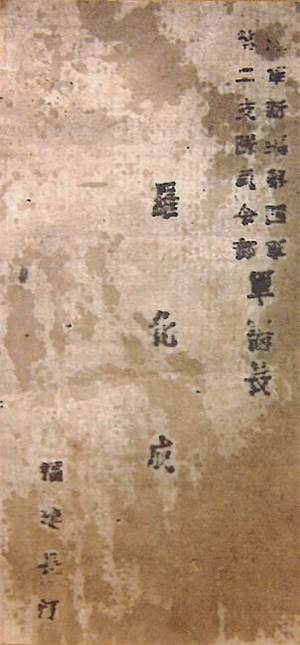 陸軍新編第四軍
第二支隊司令部
軍
羅化成
福建長汀